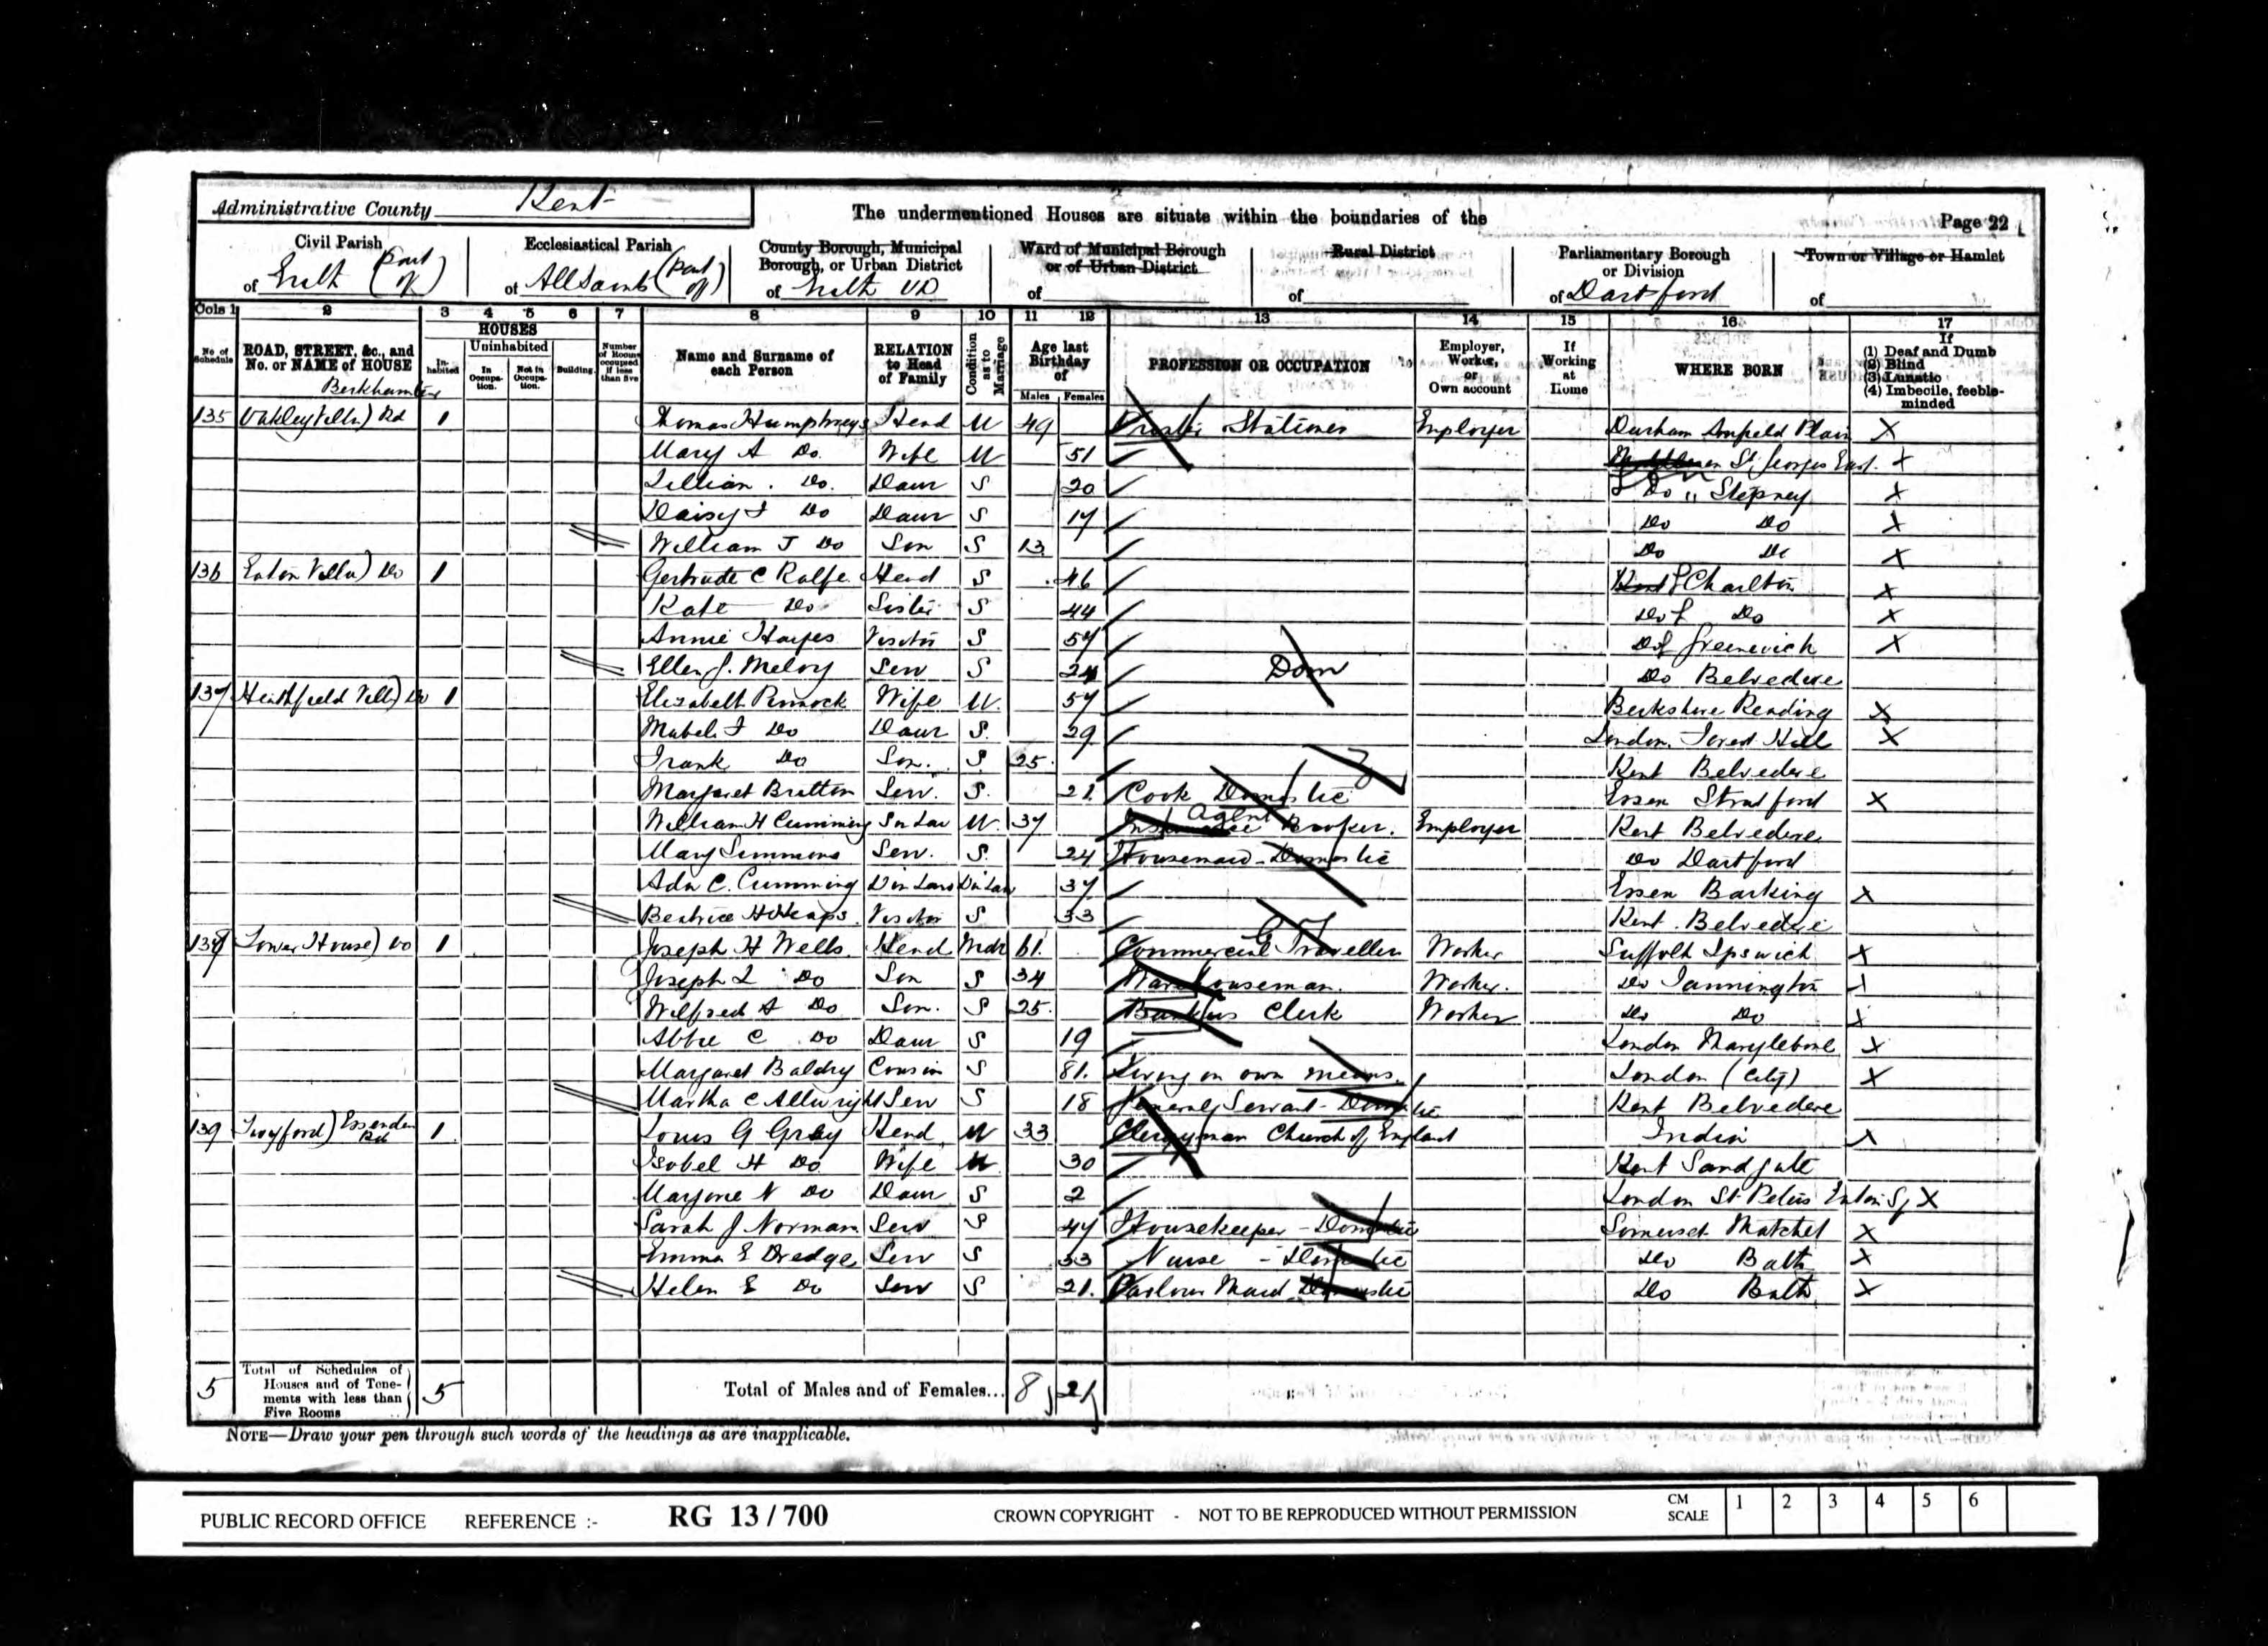 Administrative County Kent
The undermentioned Houses are situate within the boundaries of the
Page 22
Civil Parish of Erith (Part of)
Ecclesiastical Parish of All Saints (Part of)
County Borough, Municipal Borough, or Urban District of Erith UD
Ward of Municipal Borough or of Urban District of
Rural District of
Parliamentary Borough or Division of Dartford
Town or Village or Hamlet of
Cols 1 2 3 4 5 6 7 8 9 10 11 12 13 14 15 16 17
No of Schedule
ROAD, STREET, &c., and No. or NAME of HOUSE
HOUSES
Inhabited
Uninhabited
In Occupation.
Not in Occupation.
Building.
Number of Rooms occupied if less than five
Name and Surname of each Person
RELATION to Head of Family
Condition as to Marriage
Age last Birthday of
Males Females
PROFESSION OR OCCUPATION
Employer, Worker, or Own account
If Working at Home
WHERE BORN
If
(1) Deaf and Dumb
(2) Blind
(3) Lunatic
(4) Imbecile, feeble-minded
135 Oakley Villa) Rd 1 Thomas Humphreys Head M 49 Stationer Employer Durham Plain X
Mary A Do. Wife M 51 St Georges East. X
Lillian. Do. Daur S 20 Do " Stepney X
Daisy I Do Daur S 17 Do Do X
William J Do Son S 13 Do Do X
136 Eaton Villa) Do 1 Gertrude C Rolfe. Head S 46 Kent Charlton X
Kate Do Sister S 44 Do Do X
Annie Hayes Visitor S 57 Do Greenwich X
Ellen J. Meloy Serv S 24 Dom Do Belvedere
137 Heathfield Vill) Do 1 Elizabeth Pinnock Wife M. 57 Berkshire Reading X
Mabel I Do Daur S. 29 London. Forest Hill X
Frank Do Son. S 25. Kent Belvedere
Margaret Britton Serv. S. 21. Cook Domestic Essex Stratford X
William H Cumming Sn Law M. 37 Agent Broker. Employer Kent Belvedere
Mary Simmons Serv. S. 24 Housemaid - Domestic Do Dartford
Ada C. Cumming Din Law Din Law 37 Essex Barking X
Beatrice H Heaps. Visitor S 33 Kent. Belvedere
138 Tower House) Do 1 Joseph H Wells. Head Wdr 61. Commercial Traveller Worker Suffolk Ipswich X
Joseph L Do Son S 34 Warehouseman. Worker. Do Tannington X
Wilfred A Do Son. S 25. Bankers Clerk Worker Do Do X
Abbie C Do Daur S 19 London Marylebone X
Margaret Baldry Cousin S 81. Living on own means. London (City) X
Martha C Allwright Serv S 18 General Servant - Domestic Kent Belvedere
139 Twyford) Essenden Rd 1 Louis G Gray Head M 33 Clergyman Church of England India X
Isobel H Do Wife M 30 Kent Sandgate
Marjorie N Do Daur S 2 London St. Peters Eaton Sq X
Sarah J Norman Serv S 47 Housekeeper - Domestic Somerset Watchet X
Emma E Dredge Serv S 33 Nurse - Domestic Do Bath X
Helen E Do Serv S 21. Parlour Maid Domestic Do Bath X
5 Total of Schedules of Houses and of Tenements with less than Five Rooms 5 Total of Males and of Females... 8 21
NOTE—Draw your pen through such words of the headings as are inapplicable.
PUBLIC RECORD OFFICE REFERENCE :- RG 13 / 700 CROWN COPYRIGHT - NOT TO BE REPRODUCED WITHOUT PERMISSION
CM SCALE 1 2 3 4 5 6